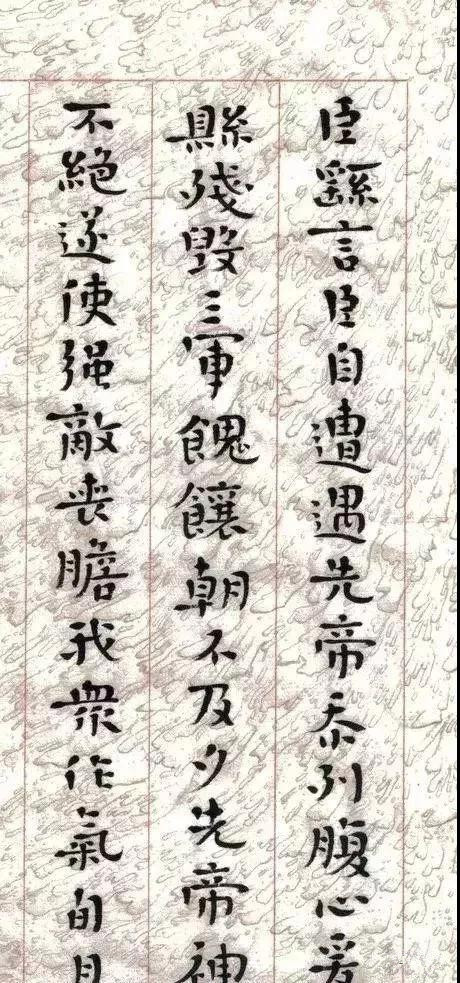 臣繇言臣自遭遇先帝忝列腹心爰
縣殘毀三軍餽饟朝不及夕先帝神
不絶遂使强敵喪膽我衆作氣旬月